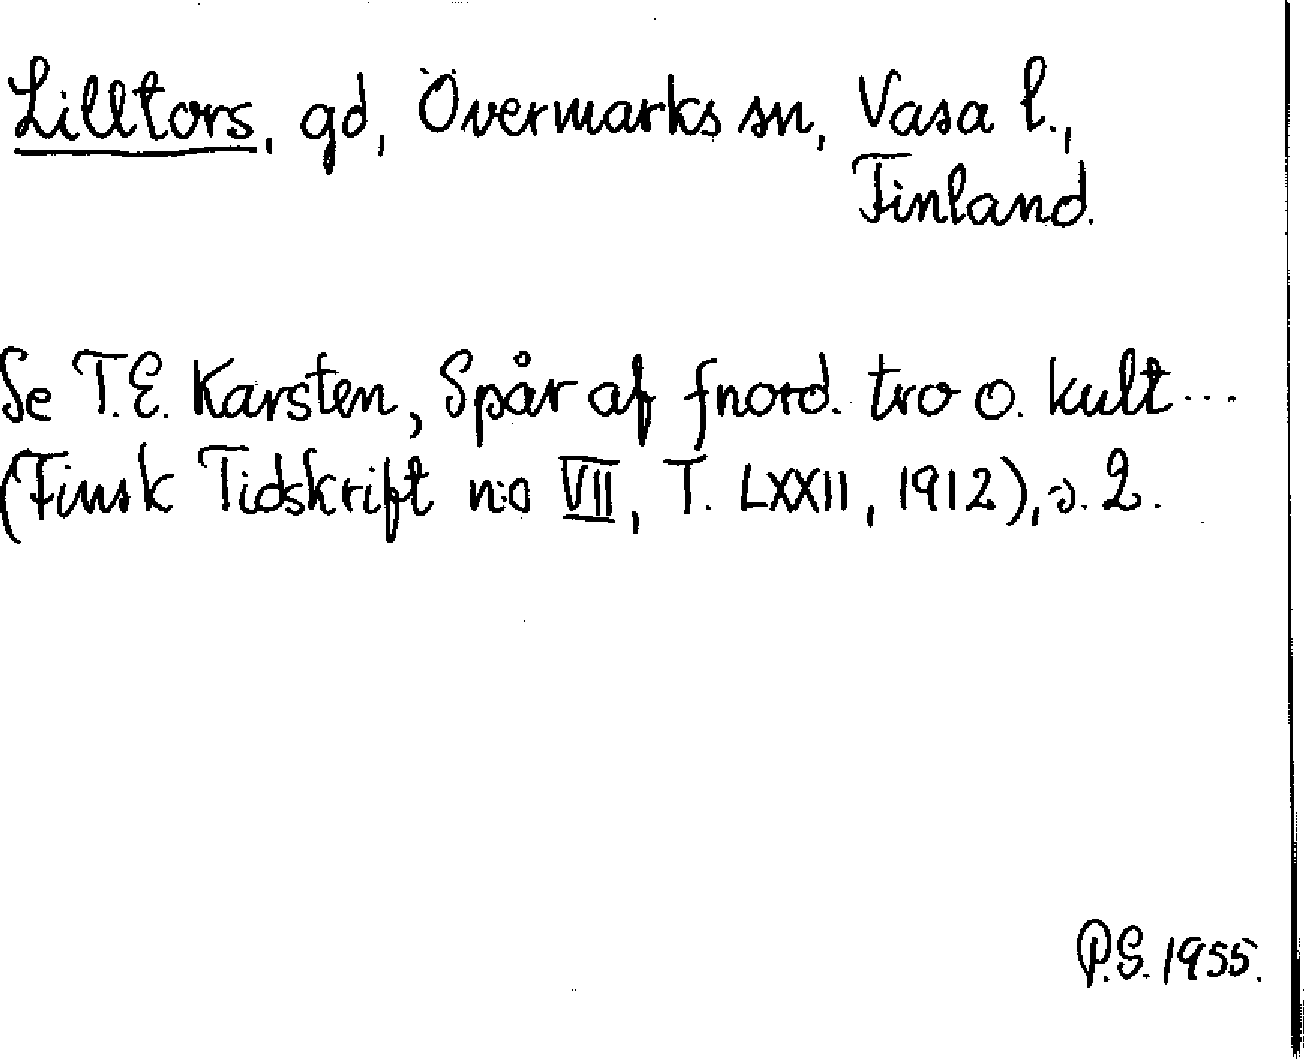 Lilltors, gd, Övermarks sn, Vasa l.,
Finland.
Se T.E. Karsten, Spår af fnord. tro o. kult ...
(Finsk Tidskrift n:o VII, T. LXXII, 1912), s. 2.
P.S. 1955.